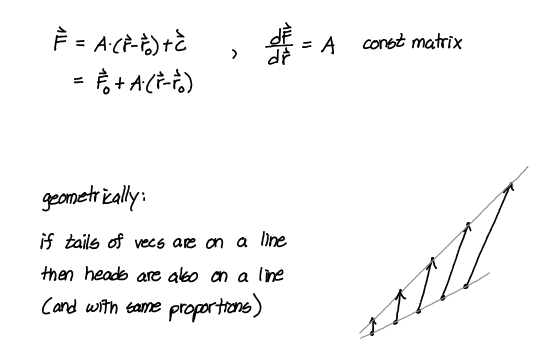 F⃗ = A·(r⃗-r⃗₀)+c⃗ , dF⃗/dr⃗ = A const matrix
= F⃗₀ + A·(r⃗-r⃗₀)
geometrically:
if tails of vecs are on a line
then heads are also on a line
(and with same proportions)